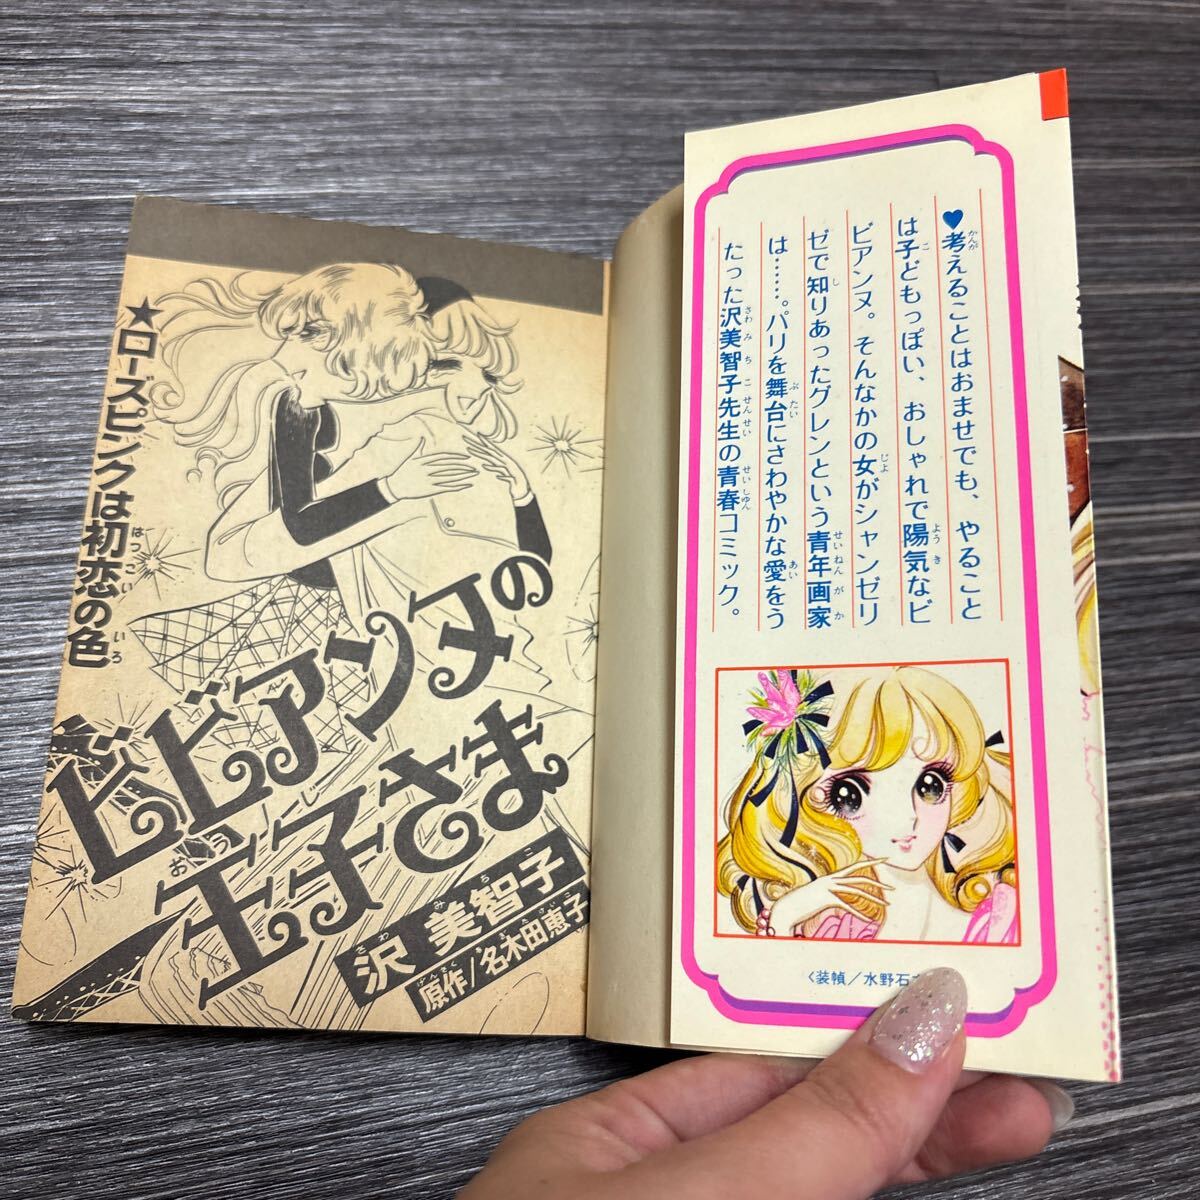 ♥考えることはおませでも、やること
は子どもっぽい、おしゃれで陽気なビ
ビアンヌ。そんなかの女がシャンゼリ
ゼで知りあったグレンという青年画家
は……。パリを舞台にさわやかな愛をう
たった沢美智子先生の青春コミック。
〈装幀／水野石
★ローズピンクは初恋の色
ビビアンヌの
王子さま
沢美智子
原作／名木田恵子